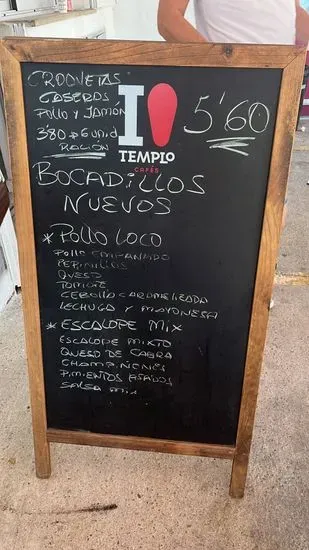 CROQUETAS
CASERAS
POLLO Y JAMÓN
3'80 € 6 unid
RACIÓN
I
TEMPLO
CAFÉS
5'60
BOCADILLOS
NUEVOS
* POLLO LOCO
POLLO EMPANADO
PEPINILLOS
QUESO
TOMATE
CEBOLLA CARAMELIZADA
LECHUGA Y MAYONESA
* ESCALOPE MIX
ESCALOPE MIXTO
QUESO DE CABRA
CHAMPIÑONES
PIMIENTOS ASADOS
SALSA MIX